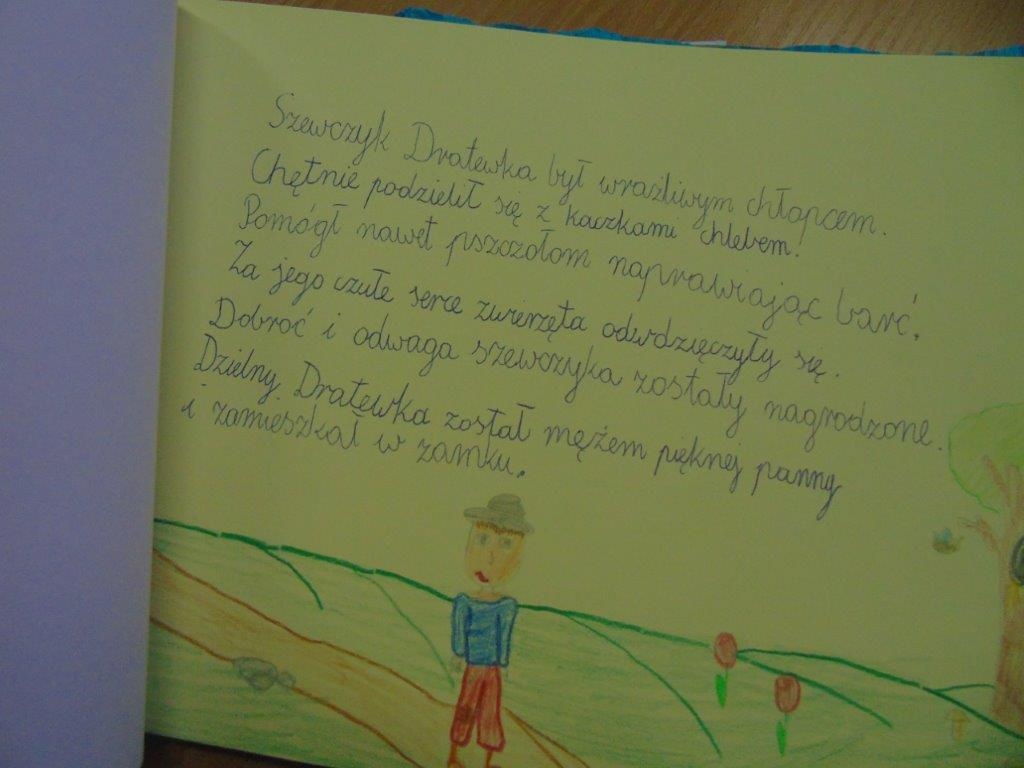 Szewczyk Dratewka był wrażliwym chłopcem.
Chętnie podzielił się z kaczkami chlebem!
Pomógł nawet pszczołom naprawiając barć.
Za jego czułe serce zwierzęta odwdzięczyły się.
Dobroć i odwaga szewczyka zostały nagrodzone.
Dzielny Dratewka został mężem pięknej panny
i zamieszkał w zamku.